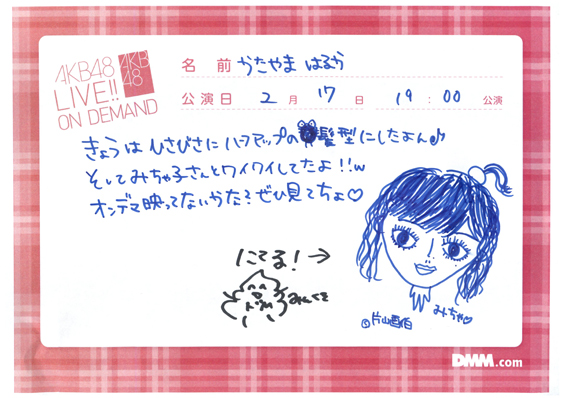 AKB48
LIVE!!
ON DEMAND
AKB
48
名 前 かたやま はるか
公演日 2 月 17 日 19:00 公演
きょうはひさびさにハーフアップの髪型にしたよん♪
そしてみちゃ子さんとワイワイしてたよ!!w
オンデマ映ってないかな?ぜひ見てちょ♡
にてる!→
みちゃ♡
DMM.com